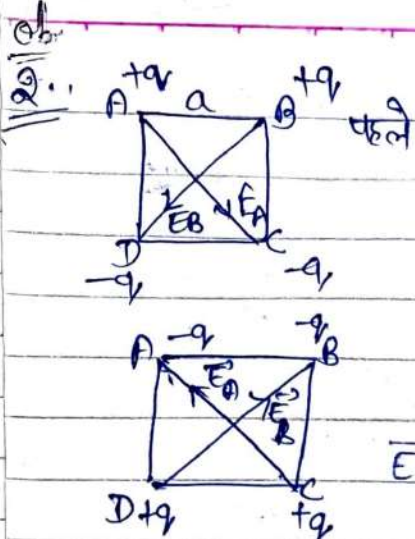 2..
+q +q
A a B पहले
EB EA
D C
-q -q
-q -q
A B
E⃗A E⃗B
E
D+q C
+q